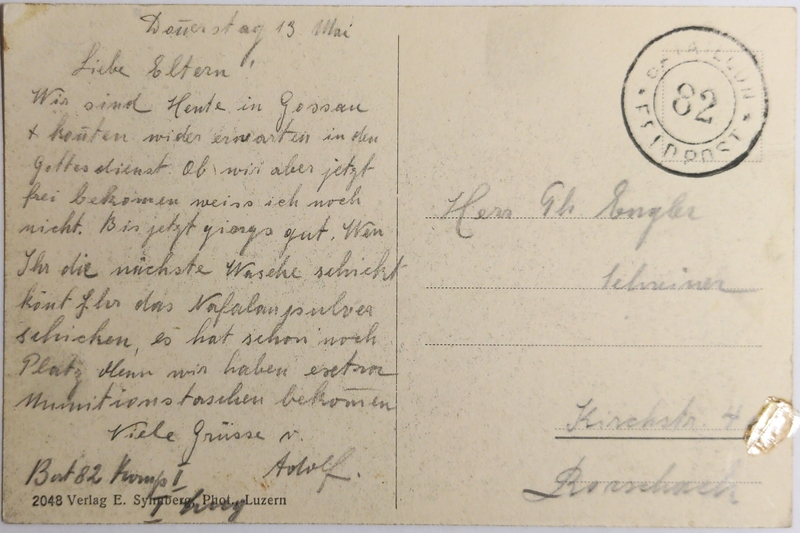 Don̄erstag 13 Mai
Liebe Eltern!
Wir sind Heute in Gossau
+ kon̄ten wider erwarten in den
Gottesdienst. Ob wir aber jetzt
frei bekom̄en weiss ich noch
nicht. Bis jetzt giengs gut. Wen
Ihr die nächste Wasche schickt
kön̄t Ihr das Nafalanpulver
schicken, es hat schon noch
Platz den wir haben extra
Munitionstaschen bekom̄en
Viele Grüsse v.
Adolf.
Bat 82 Komp I
2048 Verlag E. Synnberg, Phot., Luzern
BATAILLON
82
FELDPOST
Herr Gh Engler
Schreiner
Kirchstr. 4
Rorschach